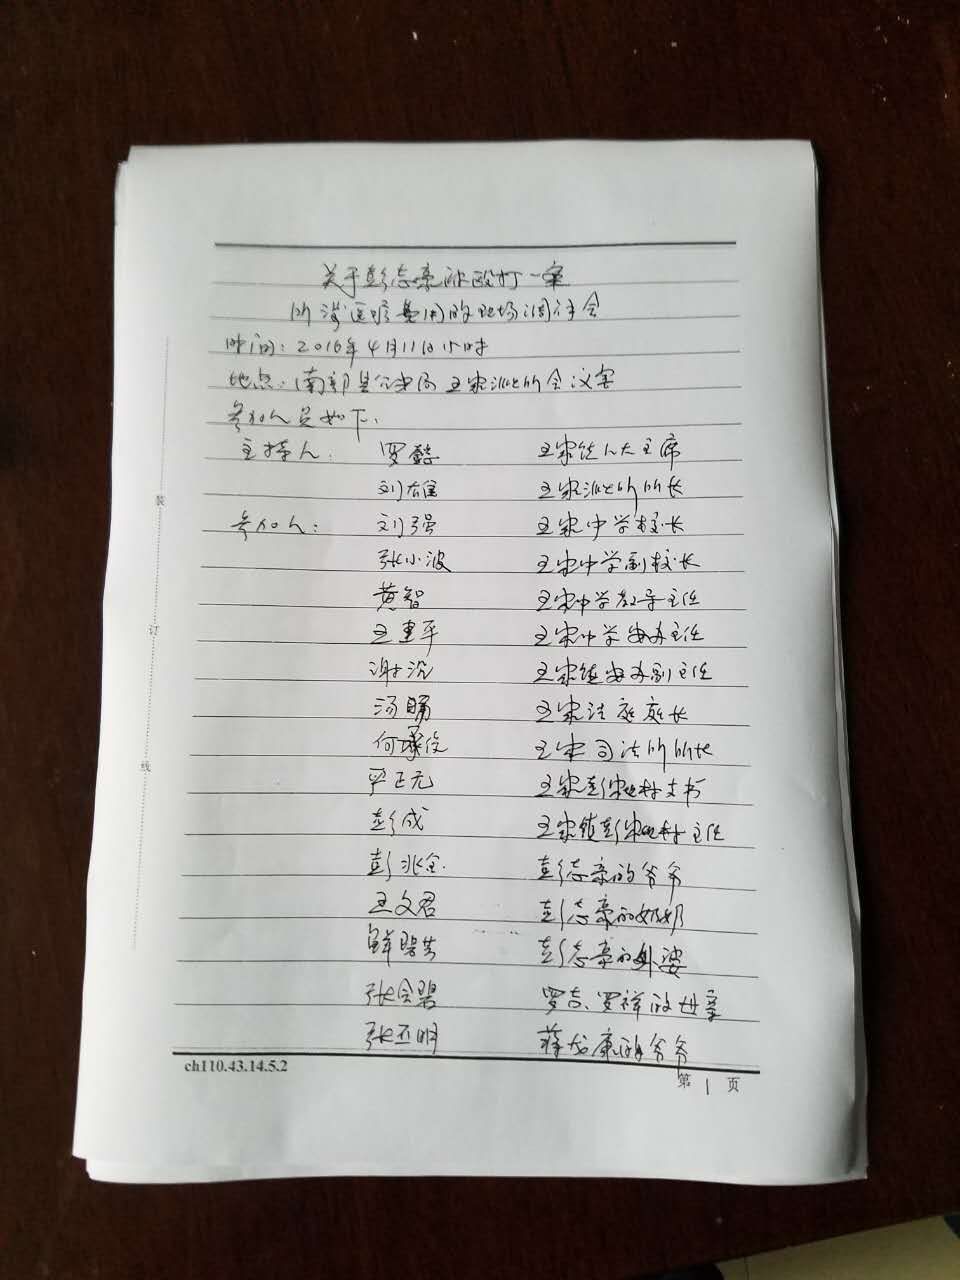 关于彭志豪被殴打一案
所涉医疗费用的现场调停会
时间：2016年4月11日15时
地点：南部县公安局王家派出所会议室
参加人员如下：
主持人： 罗懿 王家镇人大主席
刘雄 王家派出所所长
参加人： 刘强 王家中学校长
张小波 王家中学副校长
黄智 王家中学教导主任
王建平 王家中学安办主任
谢 王家镇安办副主任
汤 王家法庭庭长
何 王家司法所所长
严正元 王家彭家 村支书
彭成 王家镇彭家 村主任
彭兆全 彭志豪的爷爷
王文君 彭志豪的奶奶
鲜碧 彭志豪的外婆
张会碧 罗吉、罗祥的母亲
张丕明 蒋龙康的爷爷
装
订
线
ch110.43.14.5.2
第 1 页